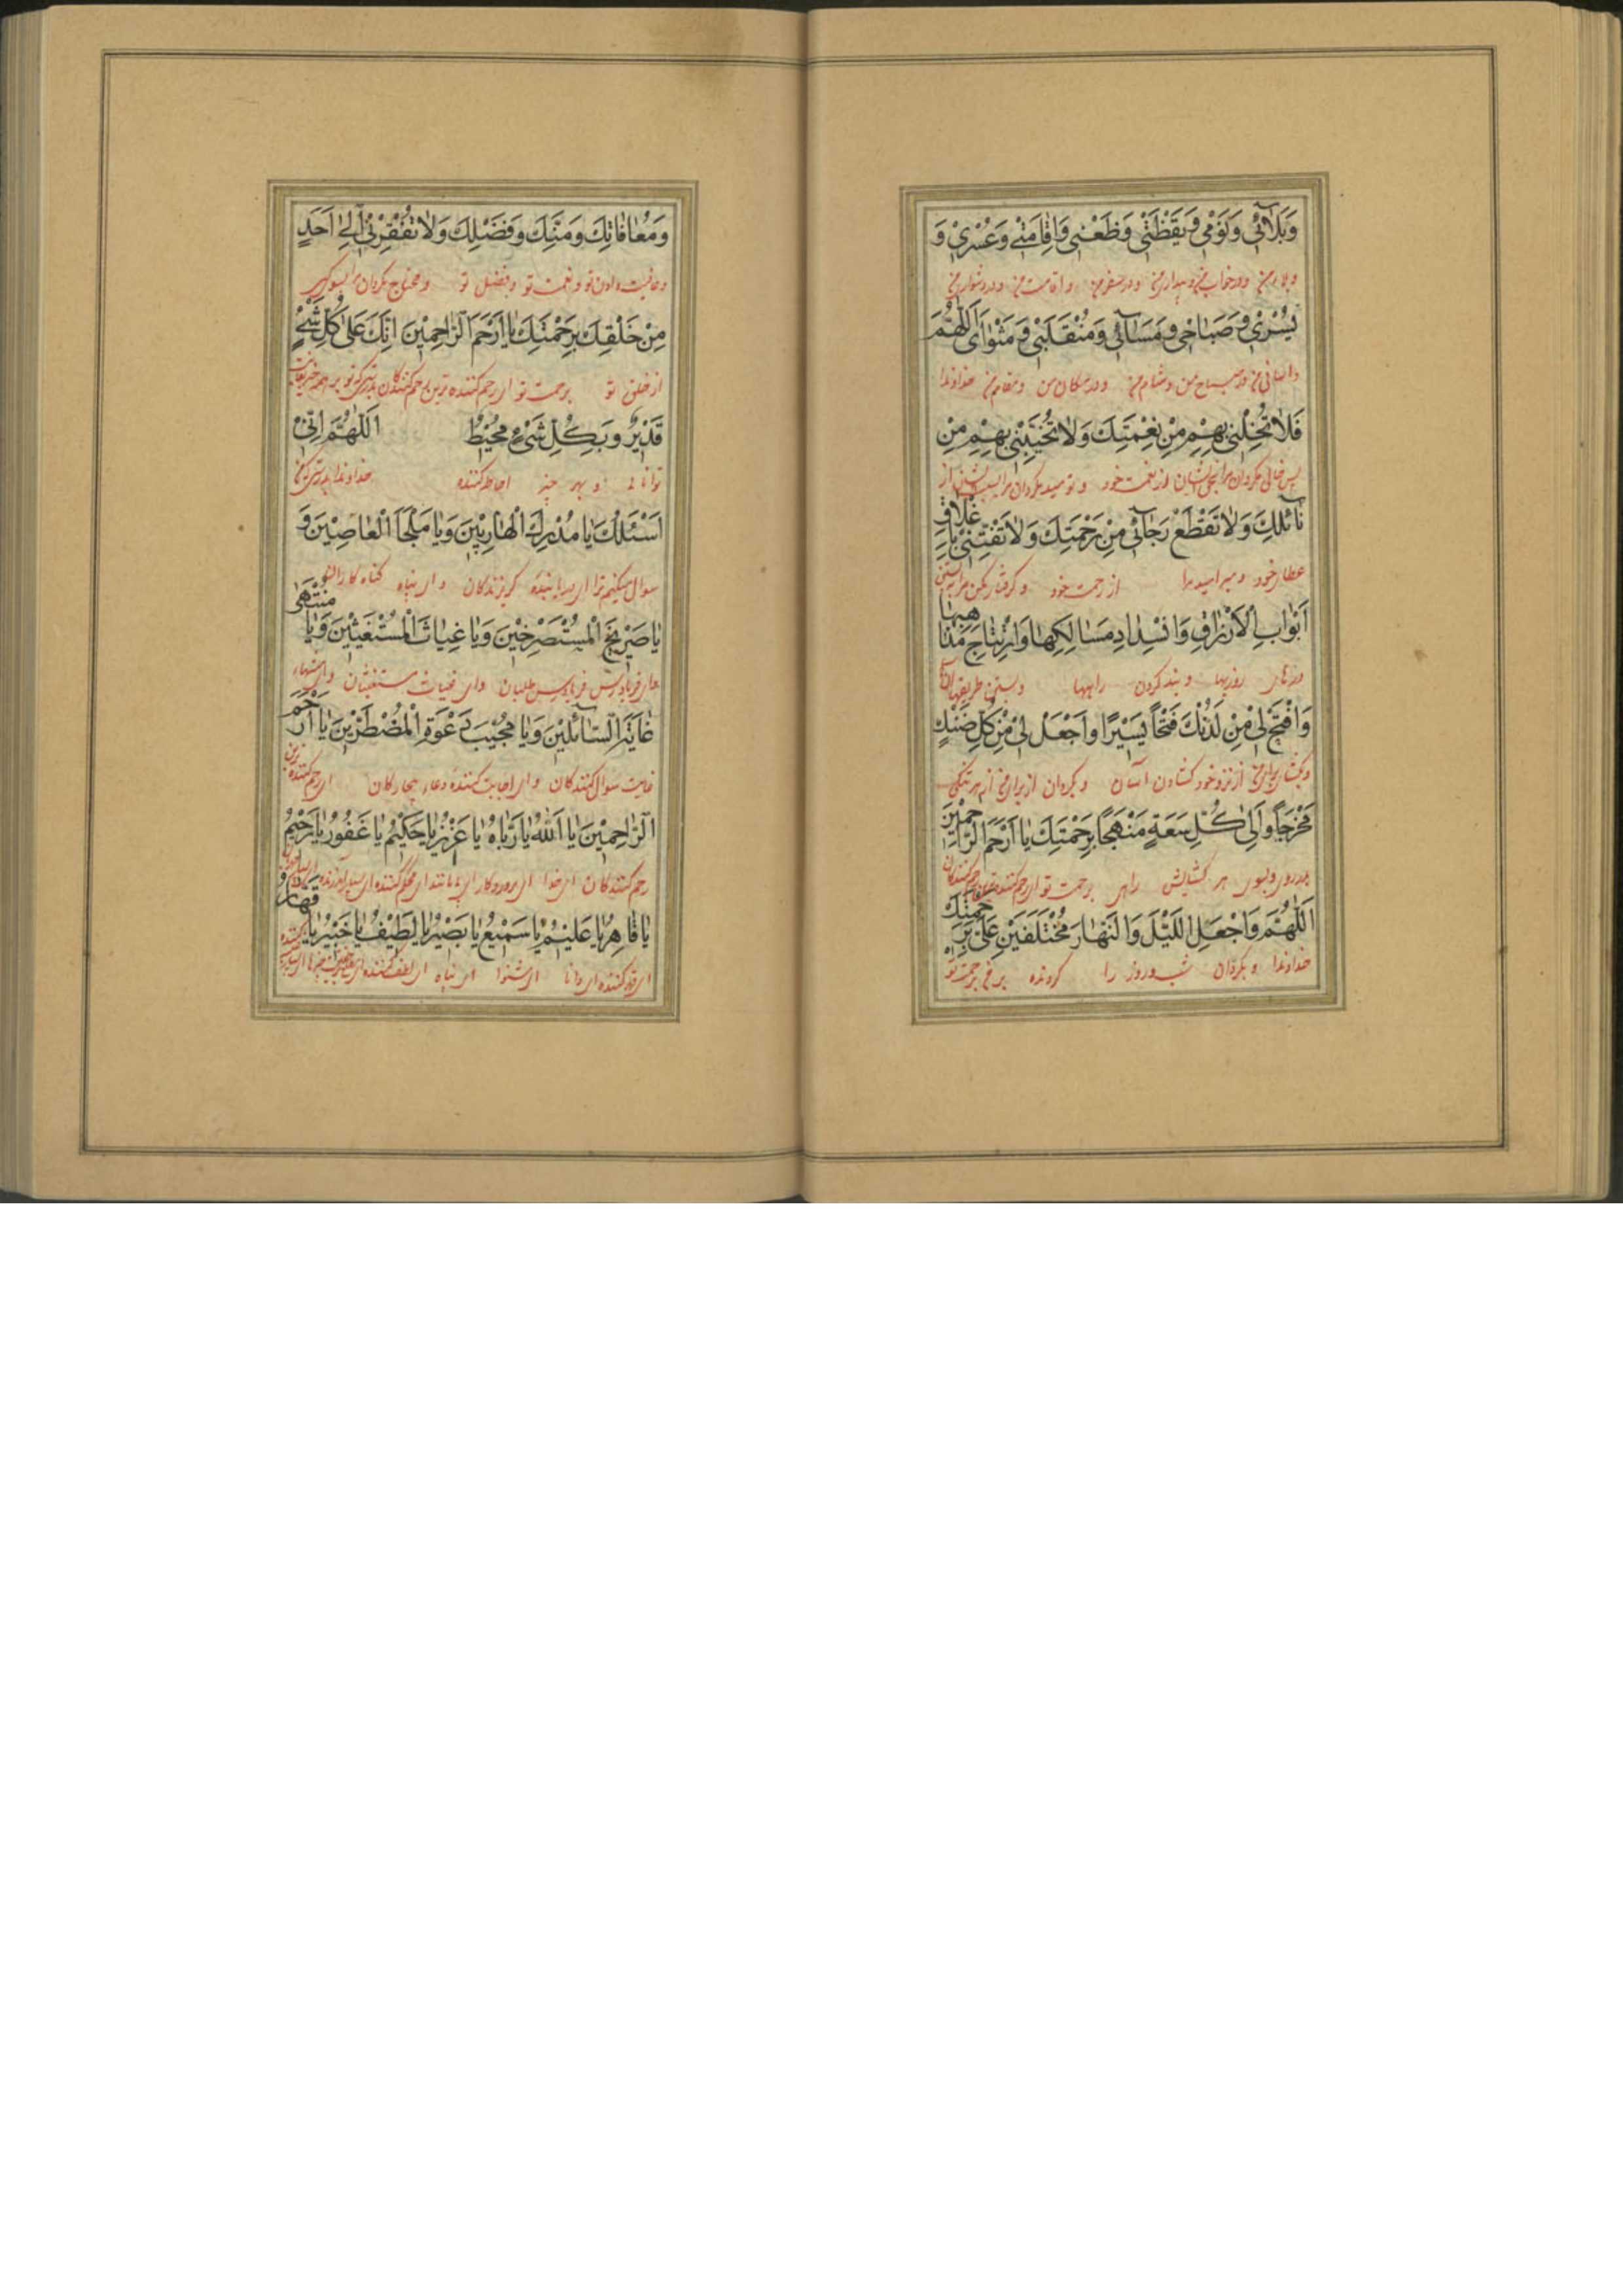 وَبَلَائِي وَنَوْمِي وَيَقْظَتِي وَظَعْنِي وَاِقَامَتِي وَعُسْرِي وَ
و بلای من و در خواب من و بیداری من و در سفر من و اقامت من و در دشواری من
يُسْرِي وَصَبَاحِي وَمَسَائِي وَمُنْقَلَبِي وَمَثْوَايَ اَللّٰهُمَّ
و آسانی من و در صباح من و شام من و در مکان من و مقام من خداوندا
فَلَا تُخِلْنِي بِهِمْ مِنْ نِعْمَتِكَ وَلَا تُخَيِّبْنِي بِهِمْ مِنْ
پس خالی مکردان مرا بحق ایشان از نعمت خود و نومید مکردان مرا بسبب ایشان از
نَائِلِكَ وَلَا تَقْطَعْ رَجَائِي مِنْ رَحْمَتِكَ وَلَا تَفْتِنِّي بِاِغْلَاقِ
عطای خود و مبر امید مرا از رحمت خود و کرفتار مکن مرا ببستن
اَبْوَابِ الْاَرْزَاقِ وَانْسِدَادِ مَسَالِكِهَا وَارْتِتَاجِ مَذَاهِبِهَا
درهای روزیها و بند کردن راهها و بستن طریقهای
وَافْتَحْ لِي مِنْ لَدُنْكَ فَتْحًا يَسِيرًا وَاجْعَلْ لِي مِنْ كُلِّ ضَنْكٍ
و بکشای برای من از نزد خود کشادن آسان و بکردان از برای من از هر تنکی
مَخْرَجًا وَاِلَى كُلِّ سَعَةٍ مَنْهَجًا بِرَحْمَتِكَ يَا اَرْحَمَ الرَّاحِمِينَ
بدر روی و بسوی هر کشایش راهی برحمت تو ای رحم کننده ترین رحم کنندکان
اَللّٰهُمَّ وَاجْعَلِ اللَّيْلَ وَالنَّهَارَ مُخْتَلِفَيْنِ عَلَيَّ بِرَحْمَتِكَ
خداوندا و بکردان شب و روز را کردنده بر من برحمت تو
وَمُعَافَاتِكَ وَمَنِّكَ وَفَضْلِكَ وَلَا تُفْقِرْنِي اِلَى اَحَدٍ
و عافیت دادن تو و نعمت تو و بفضل تو و محتاج مکردان مرا بسوی کسی
مِنْ خَلْقِكَ بِرَحْمَتِكَ يَا اَرْحَمَ الرَّاحِمِينَ اِنَّكَ عَلَى كُلِّ شَيْءٍ
از خلق تو برحمت تو ای رحم کننده ترین رحم کنندکان بدرستی که تو بر همه چیز
قَدِيرٌ وَبِكُلِّ شَيْءٍ مُحِيطٌ اَللّٰهُمَّ اِنِّي
توانائی و بهر چیز احاطه کننده خداوندا بدرستی که من
اَسْئَلُكَ يَا مُدْرِكَ الْهَارِبِينَ وَيَا مَلْجَأَ الْعَاصِينَ وَ
سوال میکنم ترا ای دریابنده کریزندکان و ای پناه کناه کاران و
يَا صَرِيخَ الْمُسْتَصْرِخِينَ وَيَا غِيَاثَ الْمُسْتَغِيثِينَ وَيَا مُنْتَهَى
و ای فریادرس فریادرس طلبان و ای غیاث مستغیثان و ای منتهاء
غَايَةِ السَّائِلِينَ وَيَا مُجِيبَ دَعْوَةِ الْمُضْطَرِّينَ يَا اَرْحَمَ
غایت سوال کنندکان و ای اجابت کننده دعاء بیچارکان ای رحم کننده ترین
الرَّاحِمِينَ يَا اَللّٰهُ يَا رَبَّاهُ يَا عَزِيزُ يَا حَكِيمُ يَا غَفُورُ يَا رَحِيمُ
رحم کنندکان ای خدا ای پروردکار ای بی مانند ای محکم کننده ای
يَا قَاهِرُ يَا عَلِيمُ يَا سَمِيعُ يَا بَصِيرُ يَا لَطِيفُ يَا خَبِيرُ يَا قَهَّارُ
ای قهر کننده ای دانا ای شنوا ای بینا ای لطف کننده ای